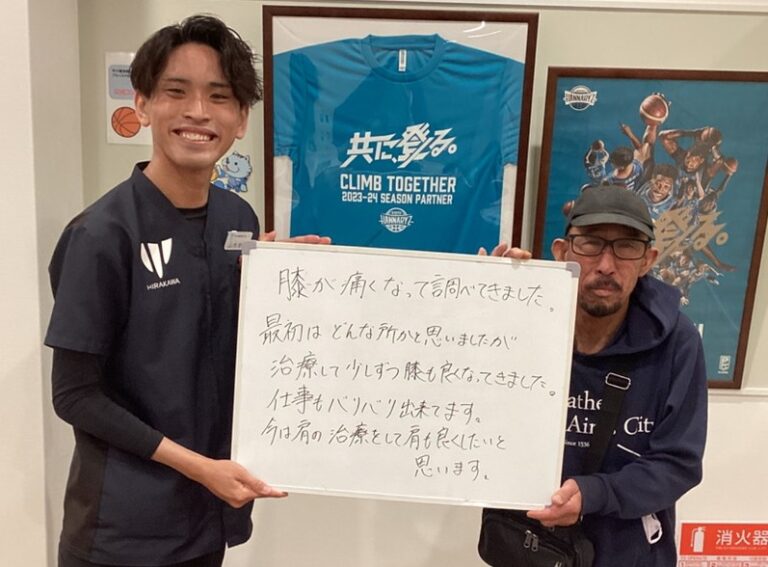 共に、登る。
CLIMB TOGETHER
2023-24 SEASON PARTNER
HANNARYZ
HANNARYZ
登る。
HIRAKAWA
膝が痛くなって調べてきました。
最初はどんな所かと思いましたが
治療して少しずつ膝も良くなってきました。
仕事もバリバリ出来てます。
今は肩の治療をして肩も良くしたいと
思います。
Since 1536
消火器